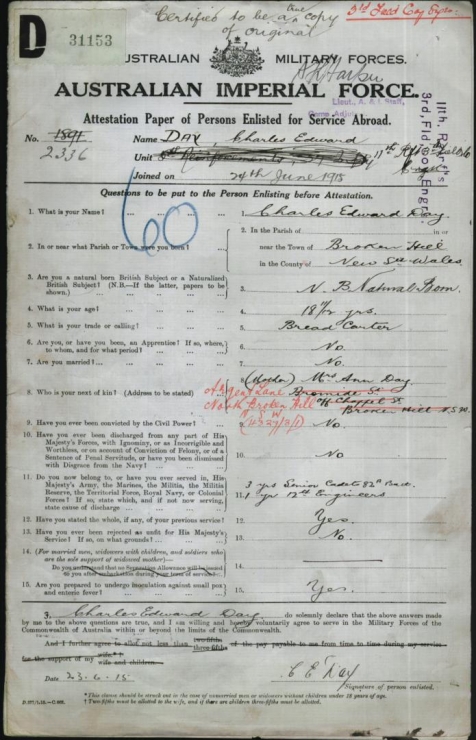 Certified to be a true copy
of original
3rd Field Coy Eng
D
31153
AUSTRALIAN MILITARY FORCES.
AUSTRALIAN IMPERIAL FORCE.
Lieut., A. & I. Staff,
Camp Adjut
11th. Reinf't's
3rd. Fld. Coy. Engr.
Attestation Paper of Persons Enlisted for Service Abroad.
No. 1891 Name DAY, Charles Edward
2336 Unit
Joined on 24th June 1915
60
Questions to be put to the Person Enlisting before Attestation.
1. What is your Name? 1. Charles Edward Day
2. In or near what Parish or Town were you born? 2. In the Parish of in or
near the Town of Broken Hill
in the County of New Sth Wales
3. Are you a natural born British Subject or a Naturalised
British Subject? (N.B.—If the latter, papers to be
shown.) 3. N. B Natural Born
4. What is your age? 4. 18 7/12 yrs.
5. What is your trade or calling? 5. Bread Carter
6. Are you, or have you been, an Apprentice? If so, where,
to whom, and for what period? 6. No
7. Are you married? 7. No.
8. Who is your next of kin? (Address to be stated) (Mother) Mrs Ann Day
Argent Lane Bromide St
off Chappel St
North Broken Hill Broken Hill N.S.W.
N. S. W
9. Have you ever been convicted by the Civil Power? 9. No.
10. Have you ever been discharged from any part of His
Majesty's Forces, with Ignominy, or as Incorrigible and
Worthless, or on account of Conviction of Felony, or of a
Sentence of Penal Servitude, or have you been dismissed
with Disgrace from the Navy? 10. No
11. Do you now belong to, or have you ever served in, His
Majesty's Army, the Marines, the Militia, the Militia
Reserve, the Territorial Force, Royal Navy, or Colonial
Forces? If so, state which, and if not now serving,
state cause of discharge 11. 3 yrs Senior Cadets 82A Batt.
1 yr 12th Engineers
12. Have you stated the whole, if any, of your previous service? 12. Yes.
13. Have you ever been rejected as unfit for His Majesty's
Service? If so, on what grounds? 13. No
14. (For married men, widowers with children, and soldiers who
are the sole support of widowed mother—
Do you understand that no Separation Allowance will be issued
to you after embarkation during your term of service? 14.
15. Are you prepared to undergo inoculation against small pox
and enteric fever? 15. Yes.
I, Charles Edward Day, do solemnly declare that the above answers made
by me to the above questions are true, and I am willing and hereby voluntarily agree to serve in the Military Forces of the
Commonwealth of Australia within or beyond the limits of the Commonwealth.
And I further agree to allot not less than two-fifths three-fifths of the pay payable to me from time to time during my service
for the support of my wife.* † wife and children.
Date 23-6-15 C E Day
Signature of person enlisted.
* This clause should be struck out in the case of unmarried men or widowers without children under 18 years of age.
† Two-fifths must be allotted to the wife, and if there are children three-fifths must be allotted.